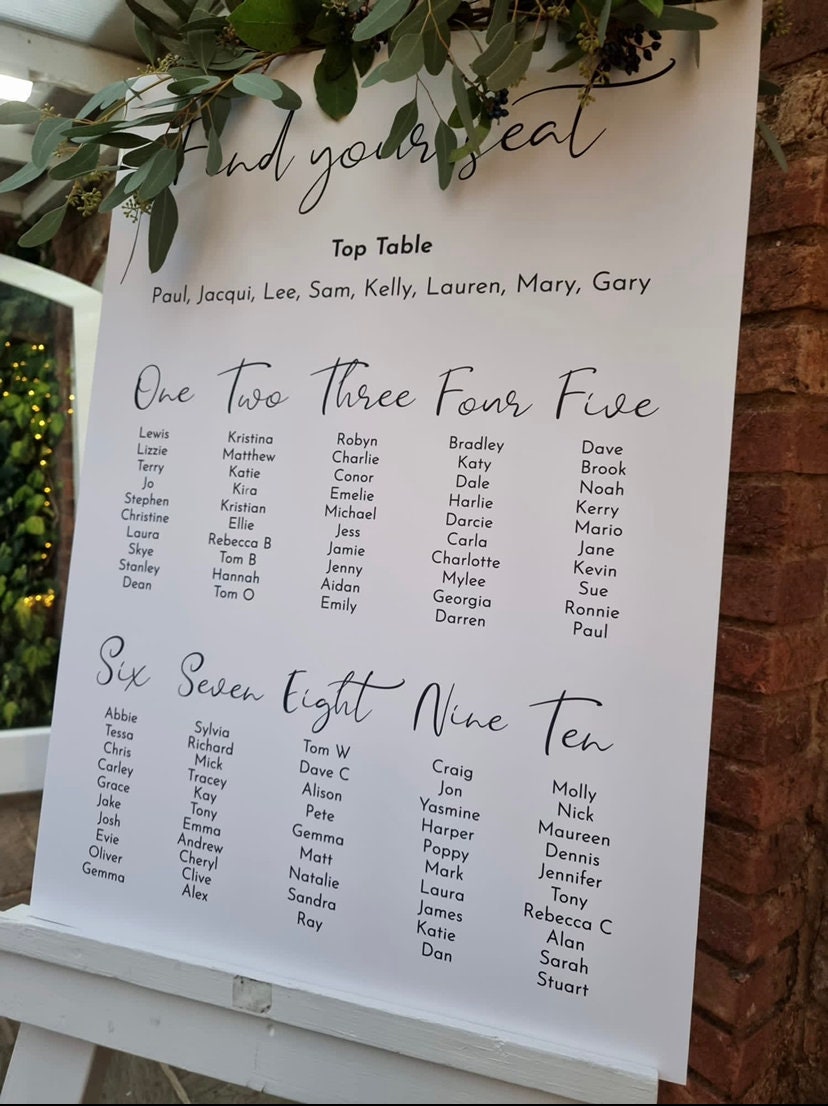 Find your seat
Top Table
Paul, Jacqui, Lee, Sam, Kelly, Lauren, Mary, Gary
One
Lewis
Lizzie
Terry
Jo
Stephen
Christine
Laura
Skye
Stanley
Dean
Two
Kristina
Matthew
Katie
Kira
Kristian
Ellie
Rebecca B
Tom B
Hannah
Tom O
Three
Robyn
Charlie
Conor
Emelie
Michael
Jess
Jamie
Jenny
Aidan
Emily
Four
Bradley
Katy
Dale
Harlie
Darcie
Carla
Charlotte
Mylee
Georgia
Darren
Five
Dave
Brook
Noah
Kerry
Mario
Jane
Kevin
Sue
Ronnie
Paul
Six
Abbie
Tessa
Chris
Carley
Grace
Jake
Josh
Evie
Oliver
Gemma
Seven
Sylvia
Richard
Mick
Tracey
Kay
Tony
Emma
Andrew
Cheryl
Clive
Alex
Eight
Tom W
Dave C
Alison
Pete
Gemma
Matt
Natalie
Sandra
Ray
Nine
Craig
Jon
Yasmine
Harper
Poppy
Mark
Laura
James
Katie
Dan
Ten
Molly
Nick
Maureen
Dennis
Jennifer
Tony
Rebecca C
Alan
Sarah
Stuart